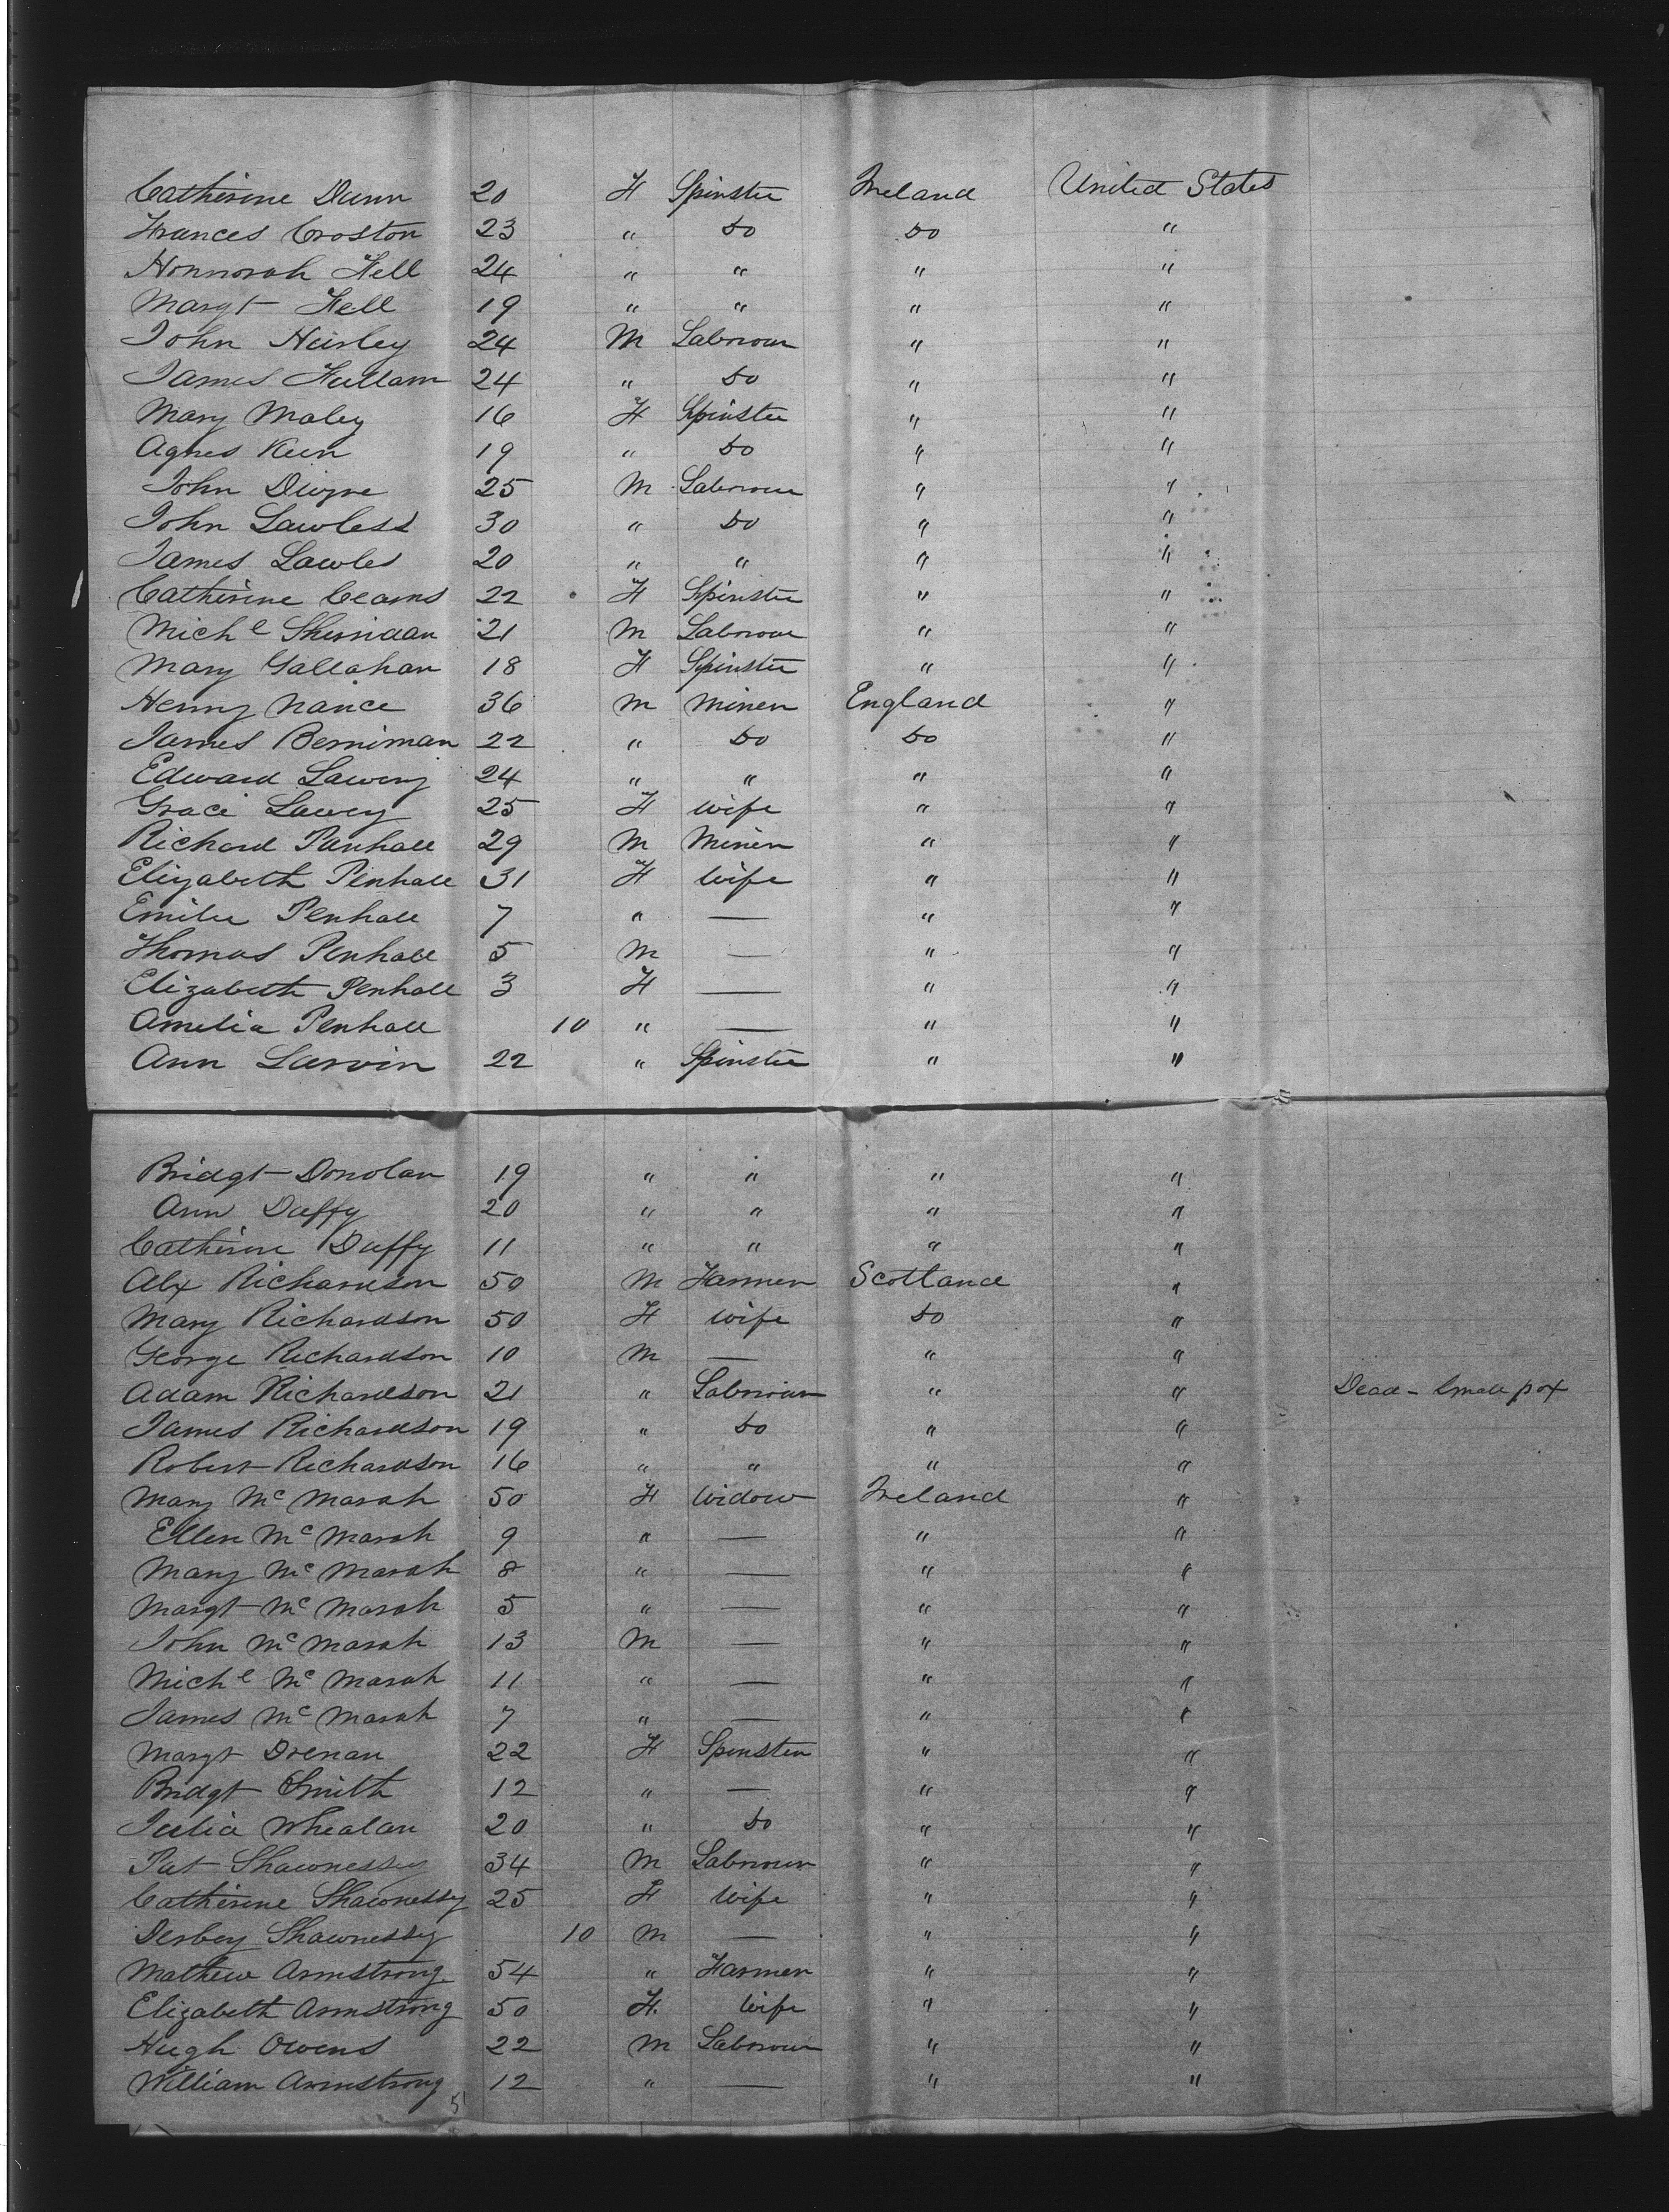 Catherine Dunn 20 F Spinster Ireland United States
Frances Croston 23 " Do Do "
Honnorah Fell 24 " " " "
Margt Fell 19 " " " "
John Hurley 24 M Labourer " "
James Fullam 24 " Do " "
Mary Maley 16 F Spinster " "
Agnes Keen 19 " Do " "
John Divyne 25 M Labourer " "
John Lawless 30 " Do " "
James Lawles 20 " " " "
Catherine Ceams 22 F Spinster " "
Michl Sherridan 21 M Labourer " "
Mary Gallahan 18 F Spinster " "
Henry Nance 36 M Miner England "
James Berriman 22 " Do Do "
Edward Lawry 24 " " " "
Grace Lawry 25 F Wife " "
Richard Panhall 29 M Miner " "
Elizabeth Penhall 31 F Wife " "
Emilie Penhall 7 " — " "
Thomas Penhall 5 M — " "
Elizabeth Penhall 3 F — " "
Amelia Penhall 10 " — " "
Ann Larvin 22 " Spinster " "
Bridgt Donolan 19 " " " "
Ann Duffy 20 " " " "
Catherine Duffy 11 " " " "
Alx Richardson 50 M Farmer Scotland "
Mary Richardson 50 F Wife Do "
George Richardson 10 M — " "
Adam Richardson 21 " Labourer " " Dead - Small pox
James Richardson 19 " Do " "
Robert Richardson 16 " " " "
Mary Mc Marah 50 F Widow Ireland "
Ellen Mc Marah 9 " — " "
Mary Mc Marah 8 " — " "
Margt Mc Marah 5 " — " "
John Mc Marah 13 M — " "
Michl Mc Marah 11 " — " "
James Mc Marah 7 " — " "
Margt Drenan 22 F Spinster " "
Bridgt Smith 12 " — " "
Julia Whealan 20 " Do " "
Pat Shawnessy 34 M Labourer " "
Catherine Shawnessy 25 F Wife " "
Derbey Shawnessy 10 M — " "
Mathew Armstrong 54 " Farmer " "
Elizabeth Armstrong 50 F. Wife " "
Hugh Owens 22 M Labourer " "
William Armstrong 12 " — " "
51